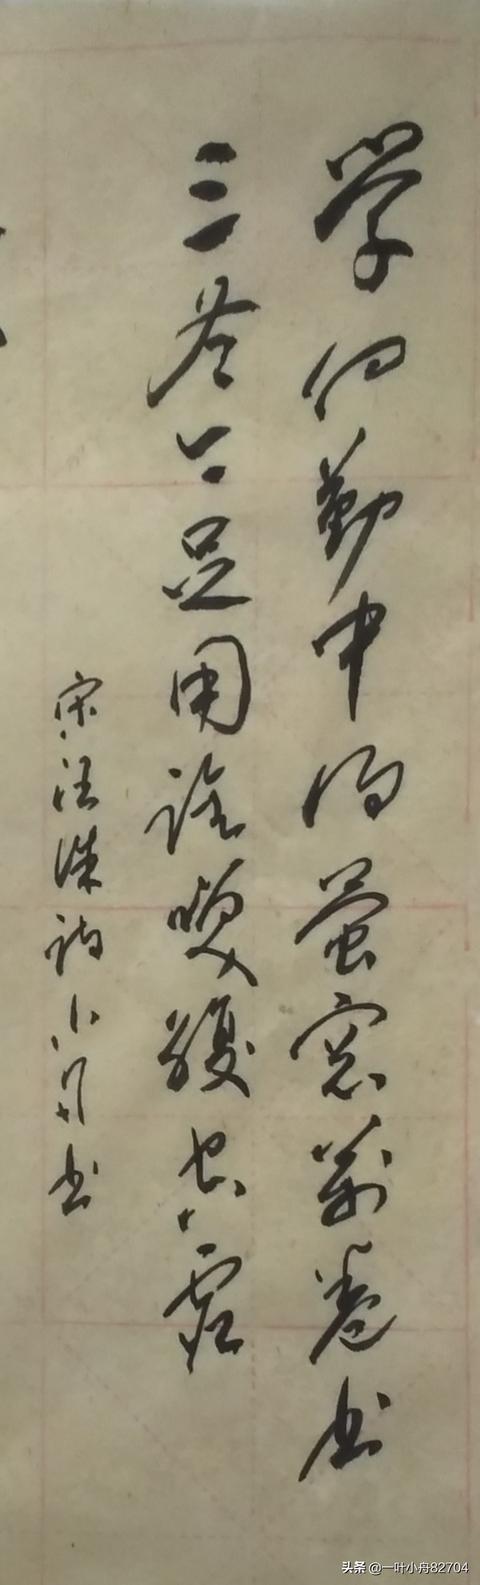 学向勤中得萤窗萬卷书
三冬今足用谁笑腹空虚
宋汪洙诗小舟书
头条 @一叶小舟82704